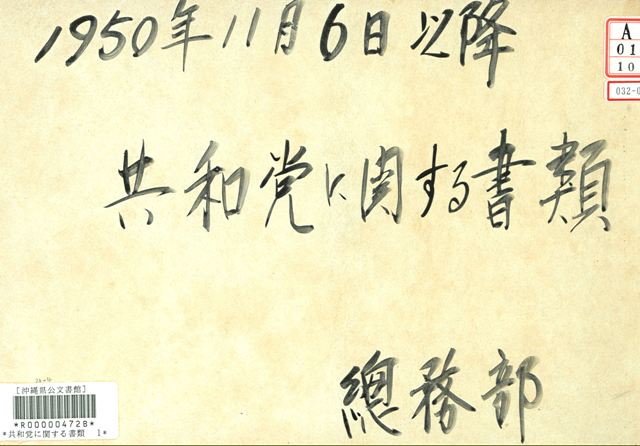 1950年11月6日以降
A
01
10
032-0
共和党に関する書類
總務部
[沖縄県公文書館]
*R00000472B*
*共和党に関する書類 1*